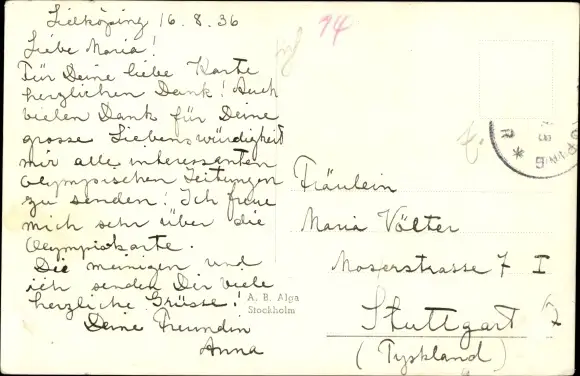 Lidköping 16.8.36
Liebe Maria!
Für Deine liebe Karte
herzlichen Dank! Auch
vielen Dank für Deine
grosse Liebenswürdigkeit
mir alle interessanten
olympischen Zeitungen
zu senden! Ich freue
mich sehr über die
Olympiakarte.
Die meinigen und
ich senden Dir viele
herzliche Grüsse!
Deine Freundin
Anna
94
KÖPING
Fräulein
Maria Völter
Moserstrasse 7 I
Stuttgart
(Tyskland)
A. B. Alga
Stockholm